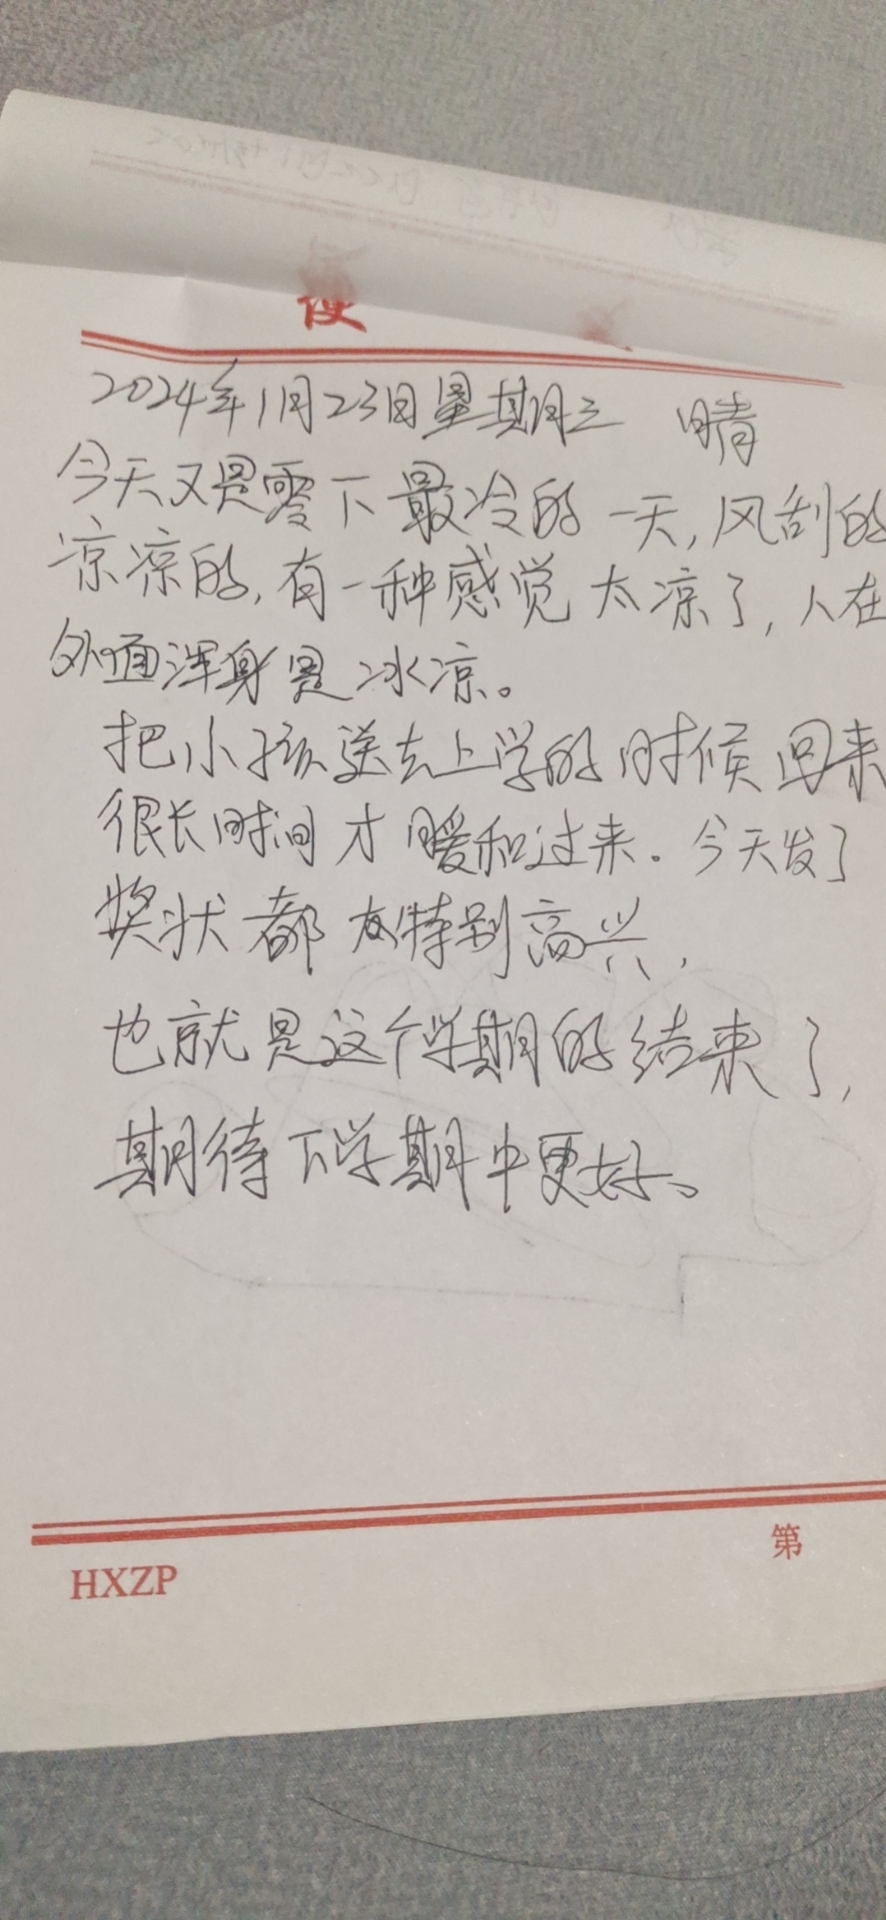 便
2024年1月23日星期三 晴
今天又是零下最冷的一天,风刮的
凉凉的,有一种感觉太凉了,人在
外面浑身是冰凉。
把小孩送去上学的时候回来
很长时间才暖和过来.今天发了
奖状都 特别高兴,
也就是这个学期的结束了,
期待下学期中更好。
第
HXZP